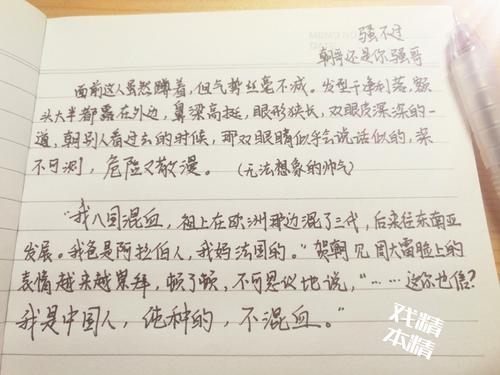 骚不过
朝哥还是你骚哥
面前这人虽然蹲着，但气势丝毫不减。发型干净利落，额
头大半都露在外边，鼻梁高挺，眼形狭长，双眼皮深深的一
道，朝别人看过去的时候，那双眼睛似乎会说话似的，深
不可测，危险又散漫。（无法想象的帅气）
“我八国混血，祖上在欧洲那边混了三代，后来往东南亚
发展。我爸是阿拉伯人，我妈法国的。”贺朝见周大雷脸上的
表情越来越崇拜，顿了顿，不可思议地说，“……这你也信？
我是中国人，纯种的，不混血。”
戏精
本精